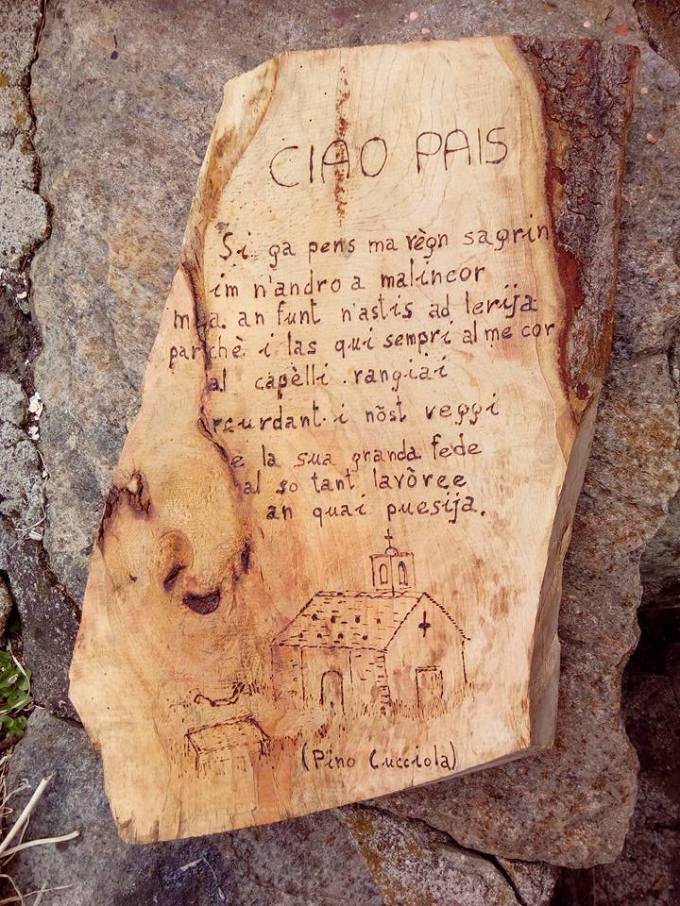 CIAO PAIS
Si ga pens ma règn sagrin
im n'andro a malincor
ma. an funt n'astis ad lerija
parchè i las qui sempri al me cor
al capèlli rangiai
rcurdant i nòst veggi
e la sua granda fede
al so tant lavòree
an quai puesija.
(Pino Cucciola)